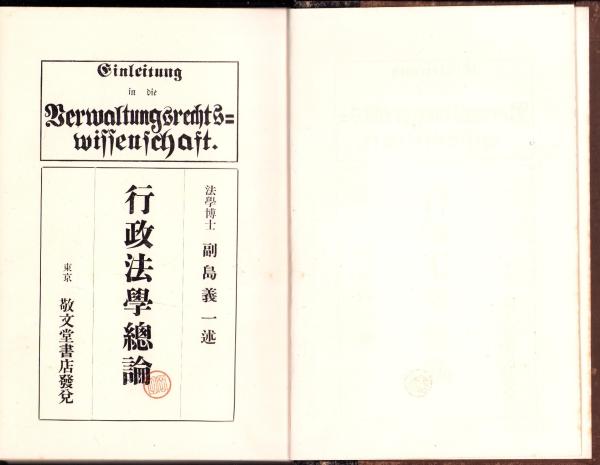 Einleitung
in die
Verwaltungsrechts=
wissenschaft.
法學博士 副島義一述
行政法學總論
東京 敬文堂書店發兌